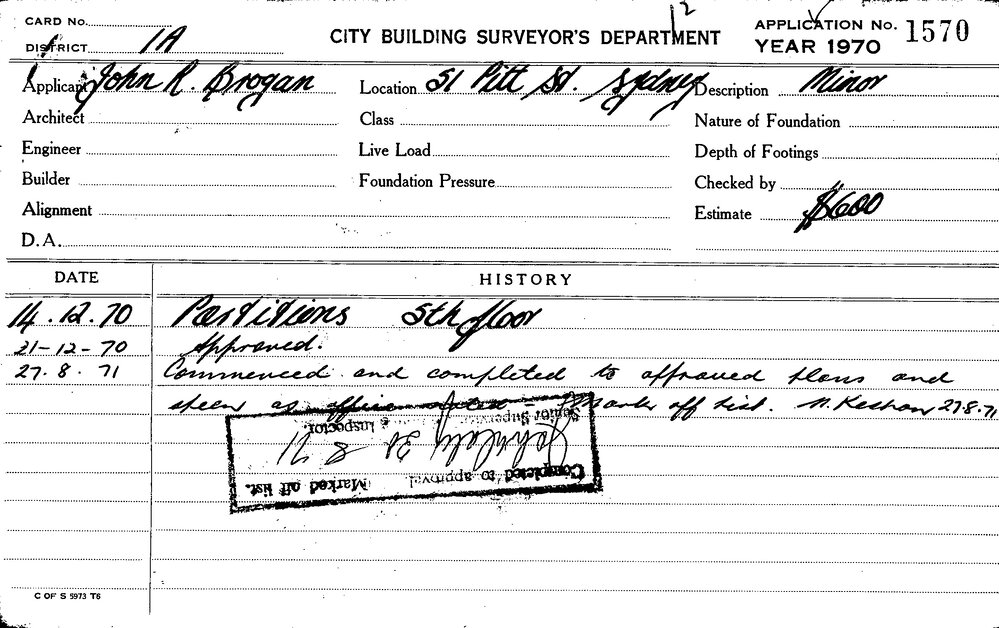 CARD No.
DISTRICT 1A
CITY BUILDING SURVEYOR'S DEPARTMENT
12
APPLICATION No. 1570
YEAR 1970
Applicant John R. Brogan
Location 51 Pitt St. Sydney
Description Minor
Architect
Class
Nature of Foundation
Engineer
Live Load
Depth of Footings
Builder
Foundation Pressure
Checked by
Alignment
Estimate $600
D.A.
DATE HISTORY
14.12.70 Partitions 5th floor
21-12-70 Approved.
27.8.71 Commenced and completed to approved plans and
specs as office Mark off list. 27.8.71
Completed to approval Marked off list.
30 8 71
Senior Supervising Inspector.
C OF S 5973 T6